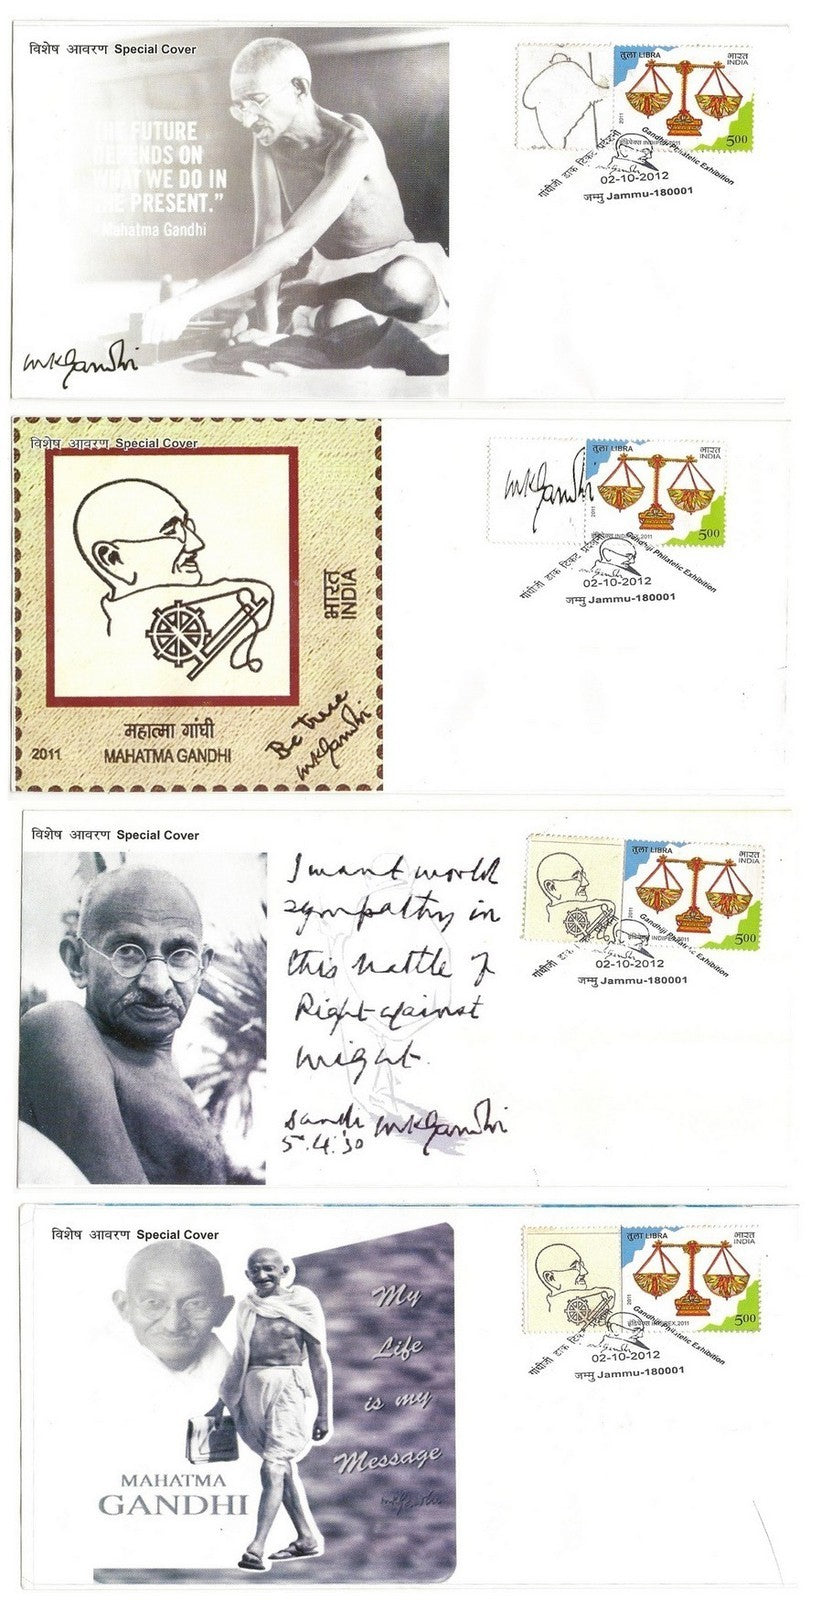 विशेष आवरण Special Cover
FUTURE
DEPENDS ON
WHAT WE DO IN
THE PRESENT."
- Mahatma Gandhi
mkGandhi
तुला LIBRA
भारत
INDIA
2011
इंडिपेक्स INDIPEX 2011
5.00
गांधीजी डाक टिकट प्रदर्शनी
Gandhiji Philatelic Exhibition
02-10-2012
जम्मु Jammu-180001
विशेष आवरण Special Cover
भारत
INDIA
महात्मा गांधी
2011 MAHATMA GANDHI
Be true
mkGandhi
mkGandhi
तुला LIBRA
भारत
INDIA
2011
इंडिपेक्स INDIPEX 2011
5.00
गांधीजी डाक टिकट प्रदर्शनी
Gandhiji Philatelic Exhibition
02-10-2012
जम्मु Jammu-180001
विशेष आवरण Special Cover
I want world
sympathy in
this battle of
Right against
might.
Dandi mkGandhi
5.4.'30
तुला LIBRA
भारत
INDIA
इंडिपेक्स INDIPEX 2011
5.00
गांधीजी डाक टिकट
Gandhiji Philatelic Exhibition
02-10-2012
जम्मु Jammu-180001
विशेष आवरण Special Cover
My
Life
is my
Message
mkGandhi
MAHATMA
GANDHI
तुला LIBRA
भारत
INDIA
2011
इंडिपेक्स INDIPEX 2011
5.00
गांधीजी डाक टिकट
Gandhiji Philatelic Exhibition
02-10-2012
जम्मु Jammu-180001